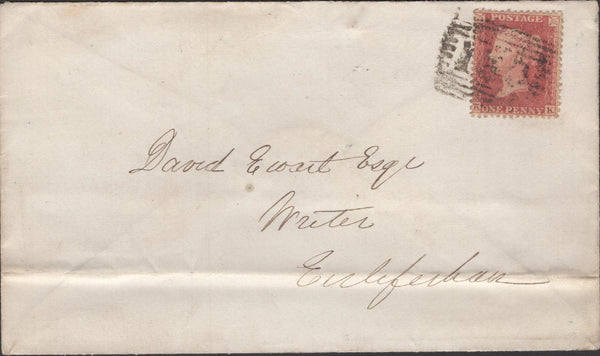 POSTAGE
ONE PENNY
K
David Ewart Esqr
Writer
Ecclefechan